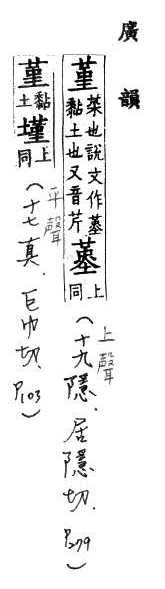 廣韻
菫菜也說文作蓳黏土也又音芹蓳上同
(十九隱.居隱切.P279)
上聲
堇黏土墐上同
(十七真.巨巾切.P103)
平聲